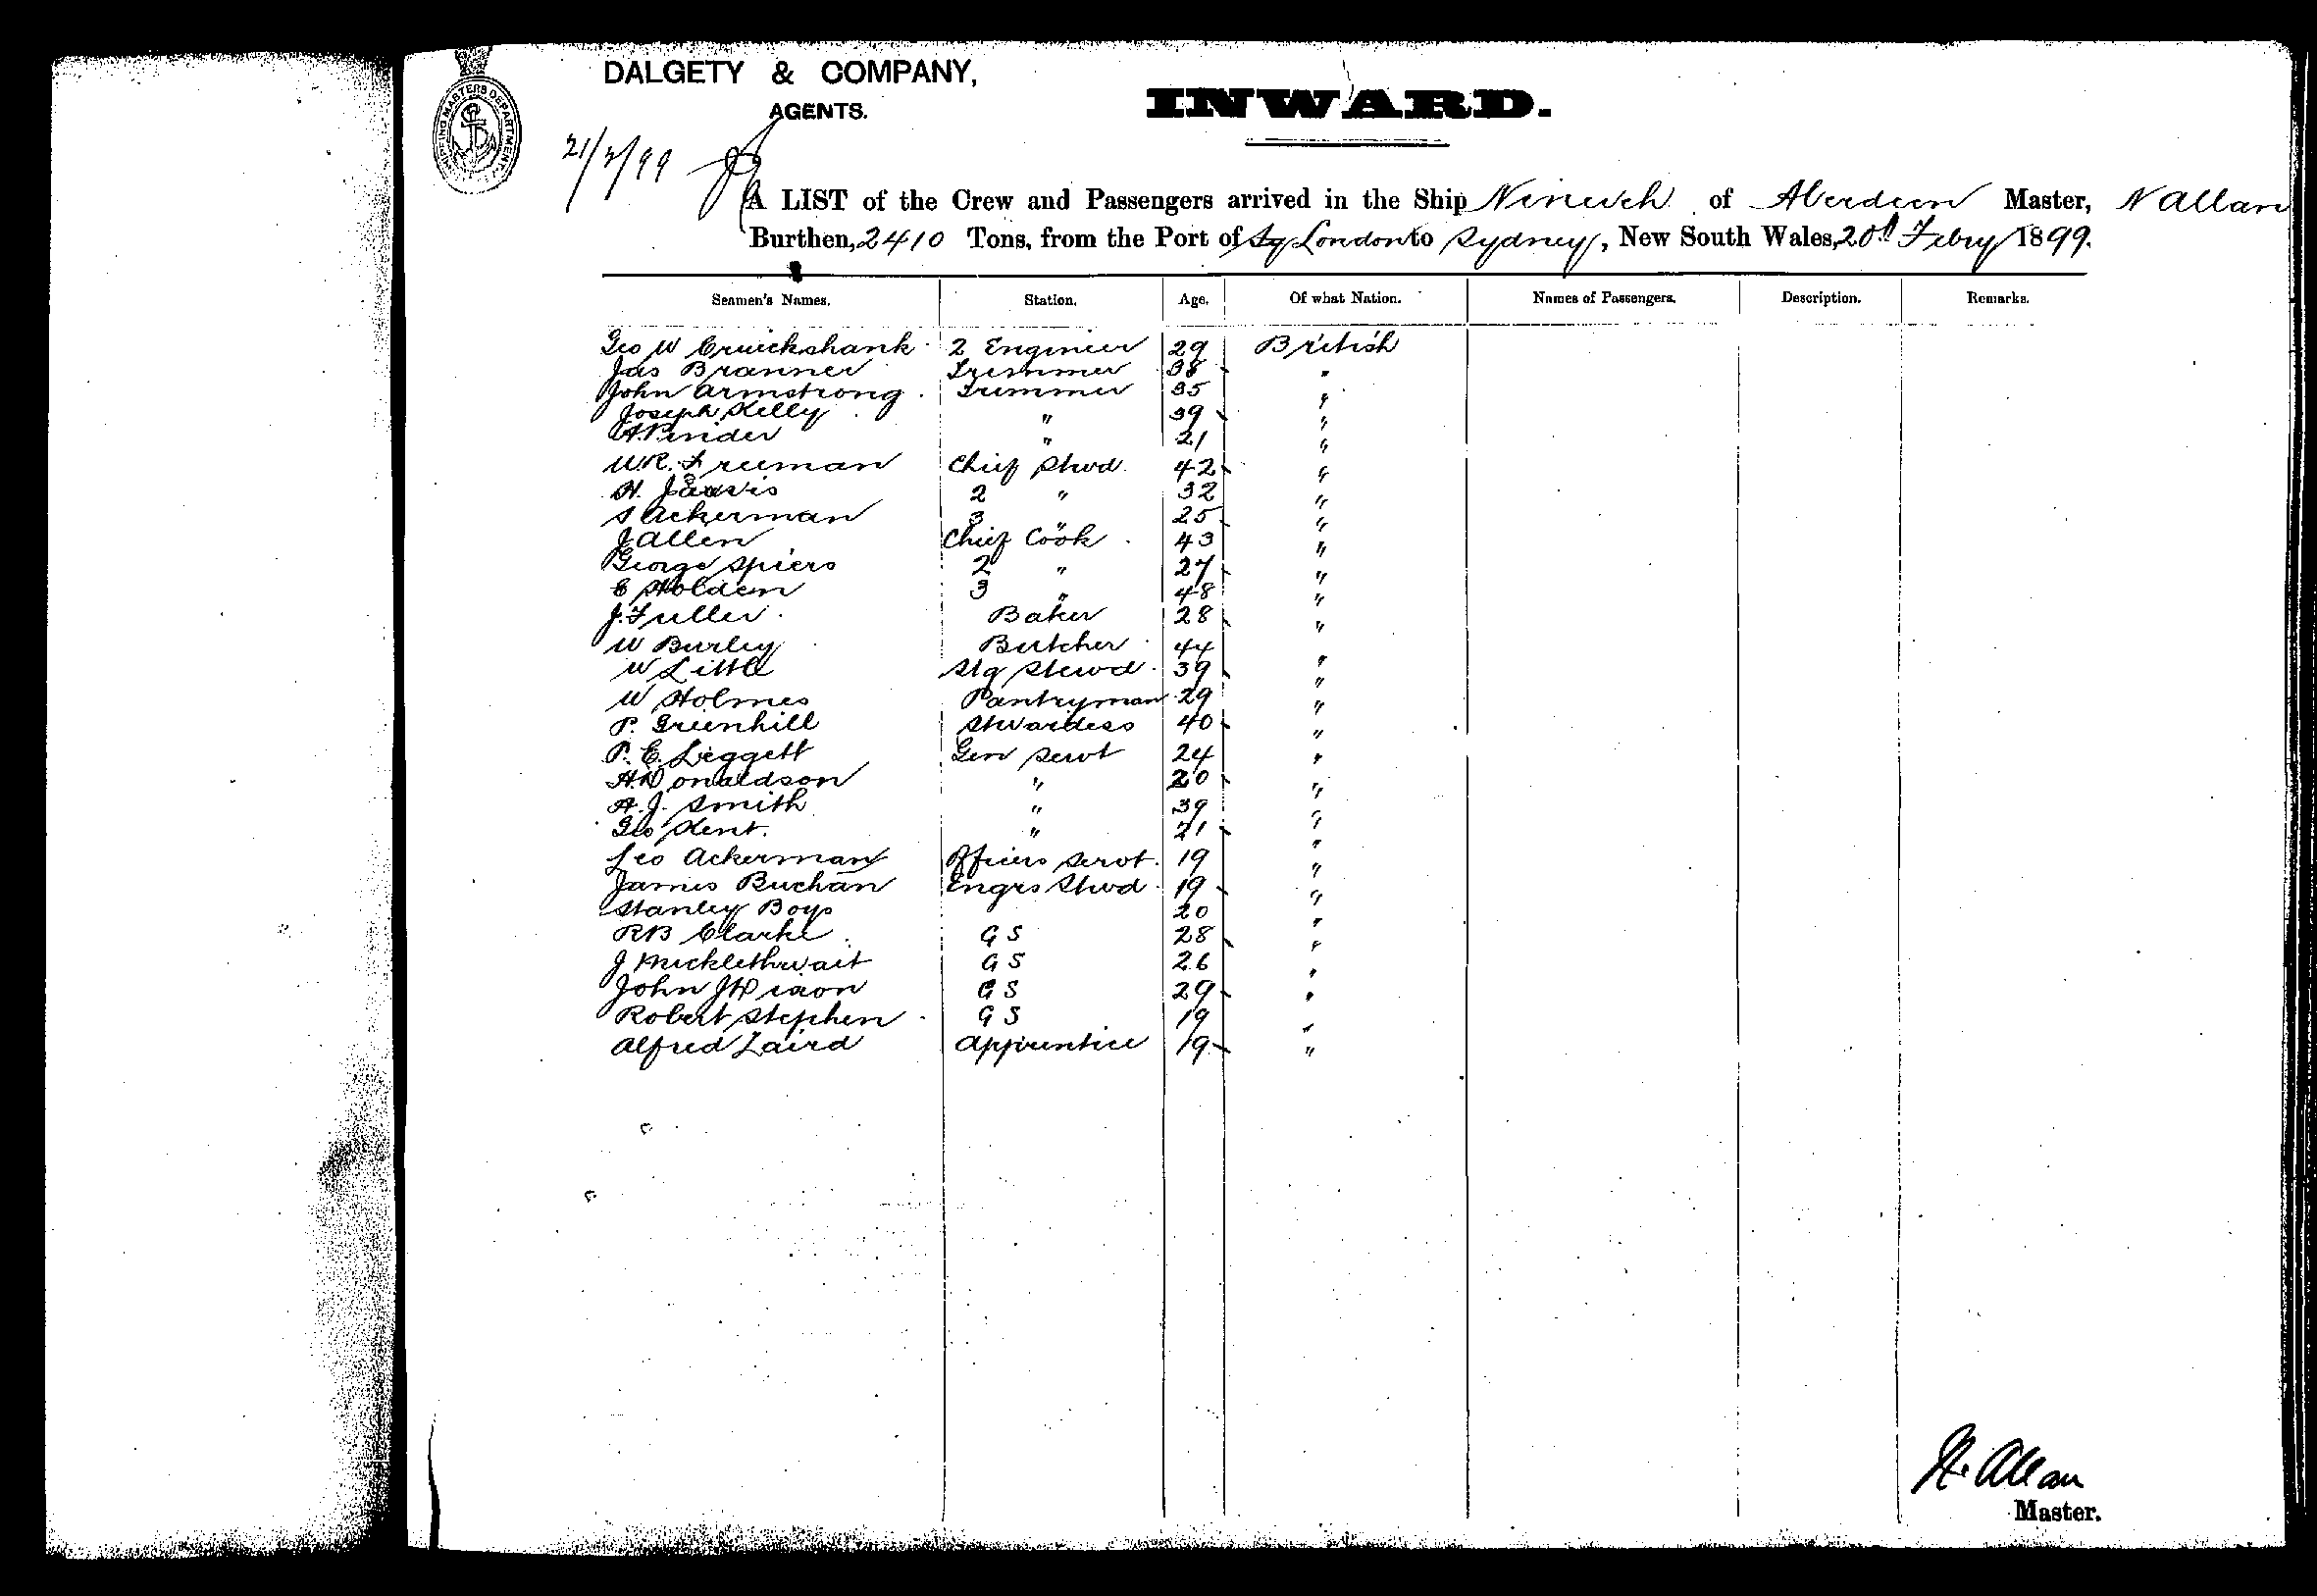 DALGETY & COMPANY,
AGENTS.
INWARD.
SHIPPING MASTERS DEPARTMENT
21/2/99
A LIST of the Crew and Passengers arrived in the Ship Nineveh of Aberdeen Master, N Allan
Burthen, 2410 Tons, from the Port of London to Sydney, New South Wales, 20th Febry 1899.
Seamen's Names. Station. Age. Of what Nation. Names of Passengers. Description. Remarks.
Geo W Cruickshank 2 Engineer 29 British
Jas Branner Trimmer 38 "
John Armstrong Trimmer 35 "
Joseph Kelly " 39 "
A Pinder " 21 "
W.R. Freeman Chief Stwd 42 "
H. Jarvis 2 " 32 "
S Ackerman 3 " 25 "
J Allen Chief Cook 43 "
George Spiers 2 " 27 "
C Holdem 3 " 48 "
J. Fuller Baker 28 "
W Burley Butcher 44 "
W Little Stg Stewd 39 "
W Holmes Pantryman 29 "
P. Greenhill Stwardess 40 "
P. C. Leggett Gen Servt 24 "
A. Donaldson " 20 "
A. J. Smith " 39 "
Geo Kent. " 21 "
Leo Ackerman Officers Servt. 19 "
James Buchan Engrs Stwd 19 "
Stanley Boys 20 "
RB Clarke G S 28 "
J Micklethwait G S 26 "
John J Dixon G S 29 "
Robert Stephen G S 19 "
Alfred Laird Apprentice 19 "
N. Allan
Master.